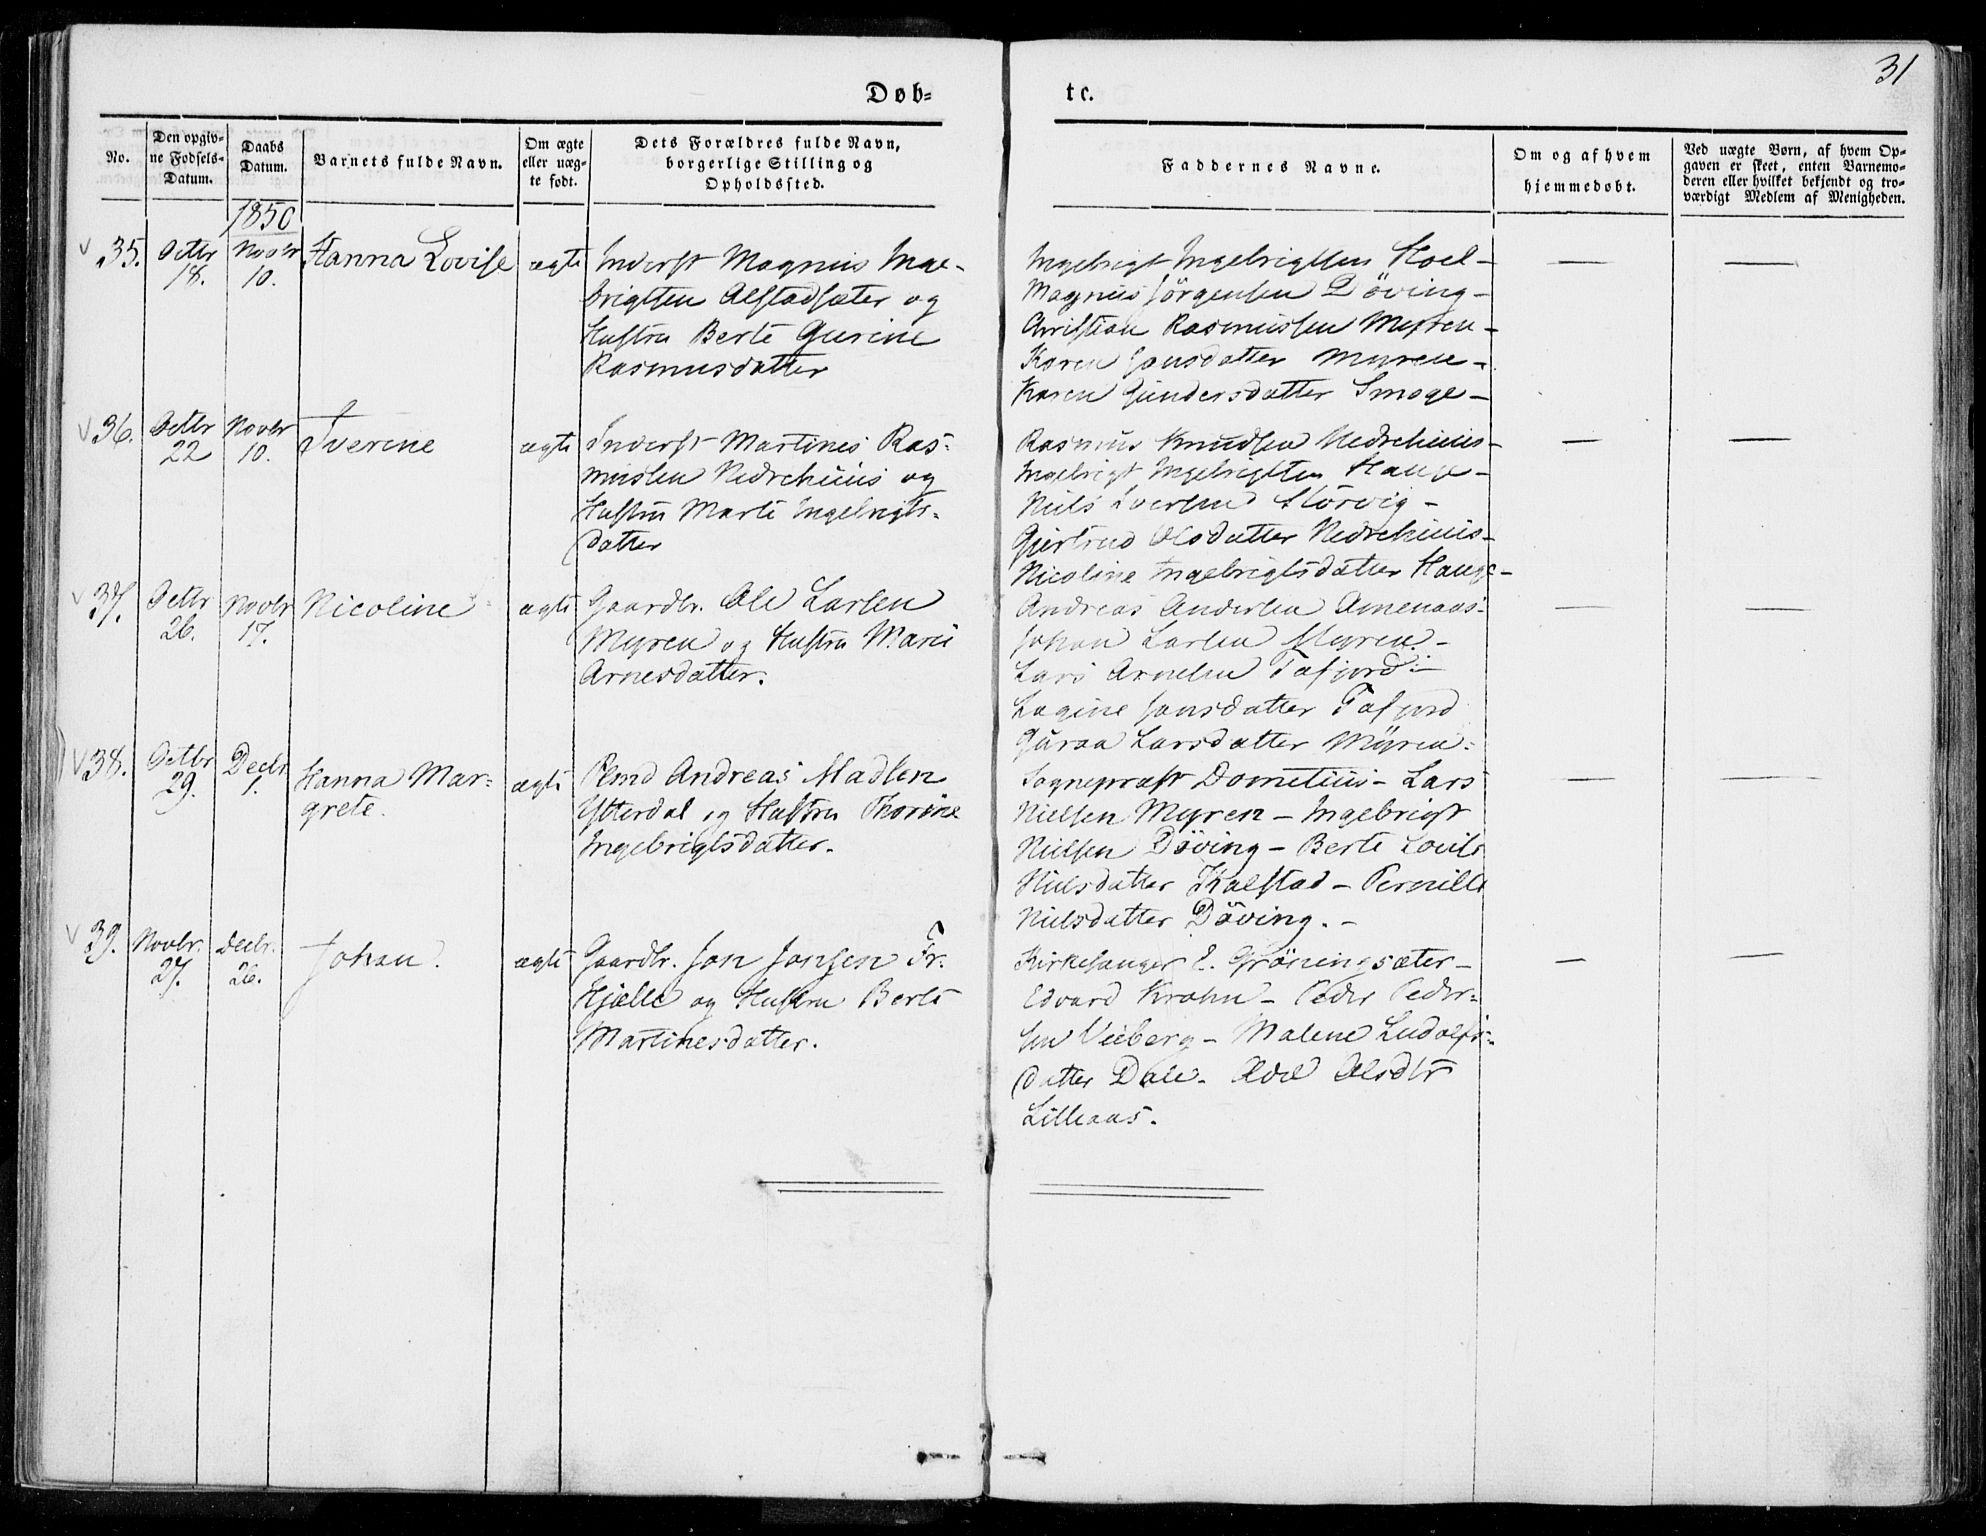 31
Døb-
te.
No.
Den opgiv-
ne Fødsels-
Datum.
Daabs
Datum.
Barnets fulde Navn.
Om ægte
eller uæg-
te født.
Dets Forældres fulde Navn,
borgerlige Stilling og
Opholdssted.
Faddernes Navne.
Om og af hvem
hjemmedøbt.
Ved uægte Børn, af hvem Op-
gaven er skeet, enten Barnemo-
deren eller hvilket bekjendt og tro-
værdigt Medlem af Menigheden.
1850
35.
Octbr
18.
Novbr
10.
Hanna Lovise
ægte
Inderst Magnus Inge-
brigtsen Alstadsæter og
Hustru Berte Gurine
Rasmusdatter
Ingebrigt Ingebrigtsen Hoel -
Magnus Jörgensen Döving -
Christian Rasmussen Myren -
Karen Jonsdatter Myren -
Karen Gundersdatter Smoge -
36.
Octbr
22
Novbr
10.
Iverine
ægte
Inderst Martines Ras-
mussen Nedrehuus og
Hustru Marte Ingebrigts-
datter
Rasmus Knudsen Nedrehuus -
Ingebrigt Ingebrigtsen Hauge -
Niels Iversen Störvig -
Gjertrud Olsdatter Nedrehuus -
Nicoline Ingebrigtsdatter Hauge -
37.
Octbr
26.
Novbr
17.
Nicoline
ægte
Gaardbr. Ole Larsen
Myren og Hustru Marie
Arnesdatter.
Andreas Andersen Amenaas -
Johan Larsen Myren -
Lars Arnesen Tafjord -
Lagine Jonsdatter Tafjord
Guraa Larsdatter Myren -
38.
Octbr
29.
Decbr
1.
Hanna Mar-
grete.
ægte
Pmd Andreas Madsen
Ytterdal og Hustru Thorine
Ingebrigtsdatter.
Sognepræst Dometius - Lars
Nielsen Myren - Ingebrigt
Nielsen Döving - Berte Lovise
Nielsdatter Kalstad - Pernille
Nielsdatter Döving. -
39.
Novbr.
27.
Decbr.
26.
Johan.
ægte
Gaardbr. Jon Jonsen Fr.
Hjelle og Hustru Berte
Martinesdatter.
Kirkesanger E. Gröningsæter -
Edvard Krohn - Peder Peder-
sen Vieberg - Malene Ludolfs-
datter Dale. Olsdtr
Lilleaas.